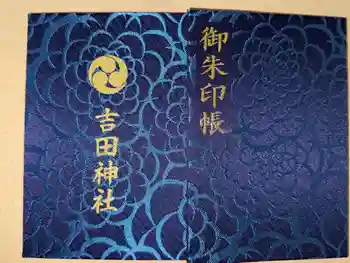 御朱印帳
吉田神社